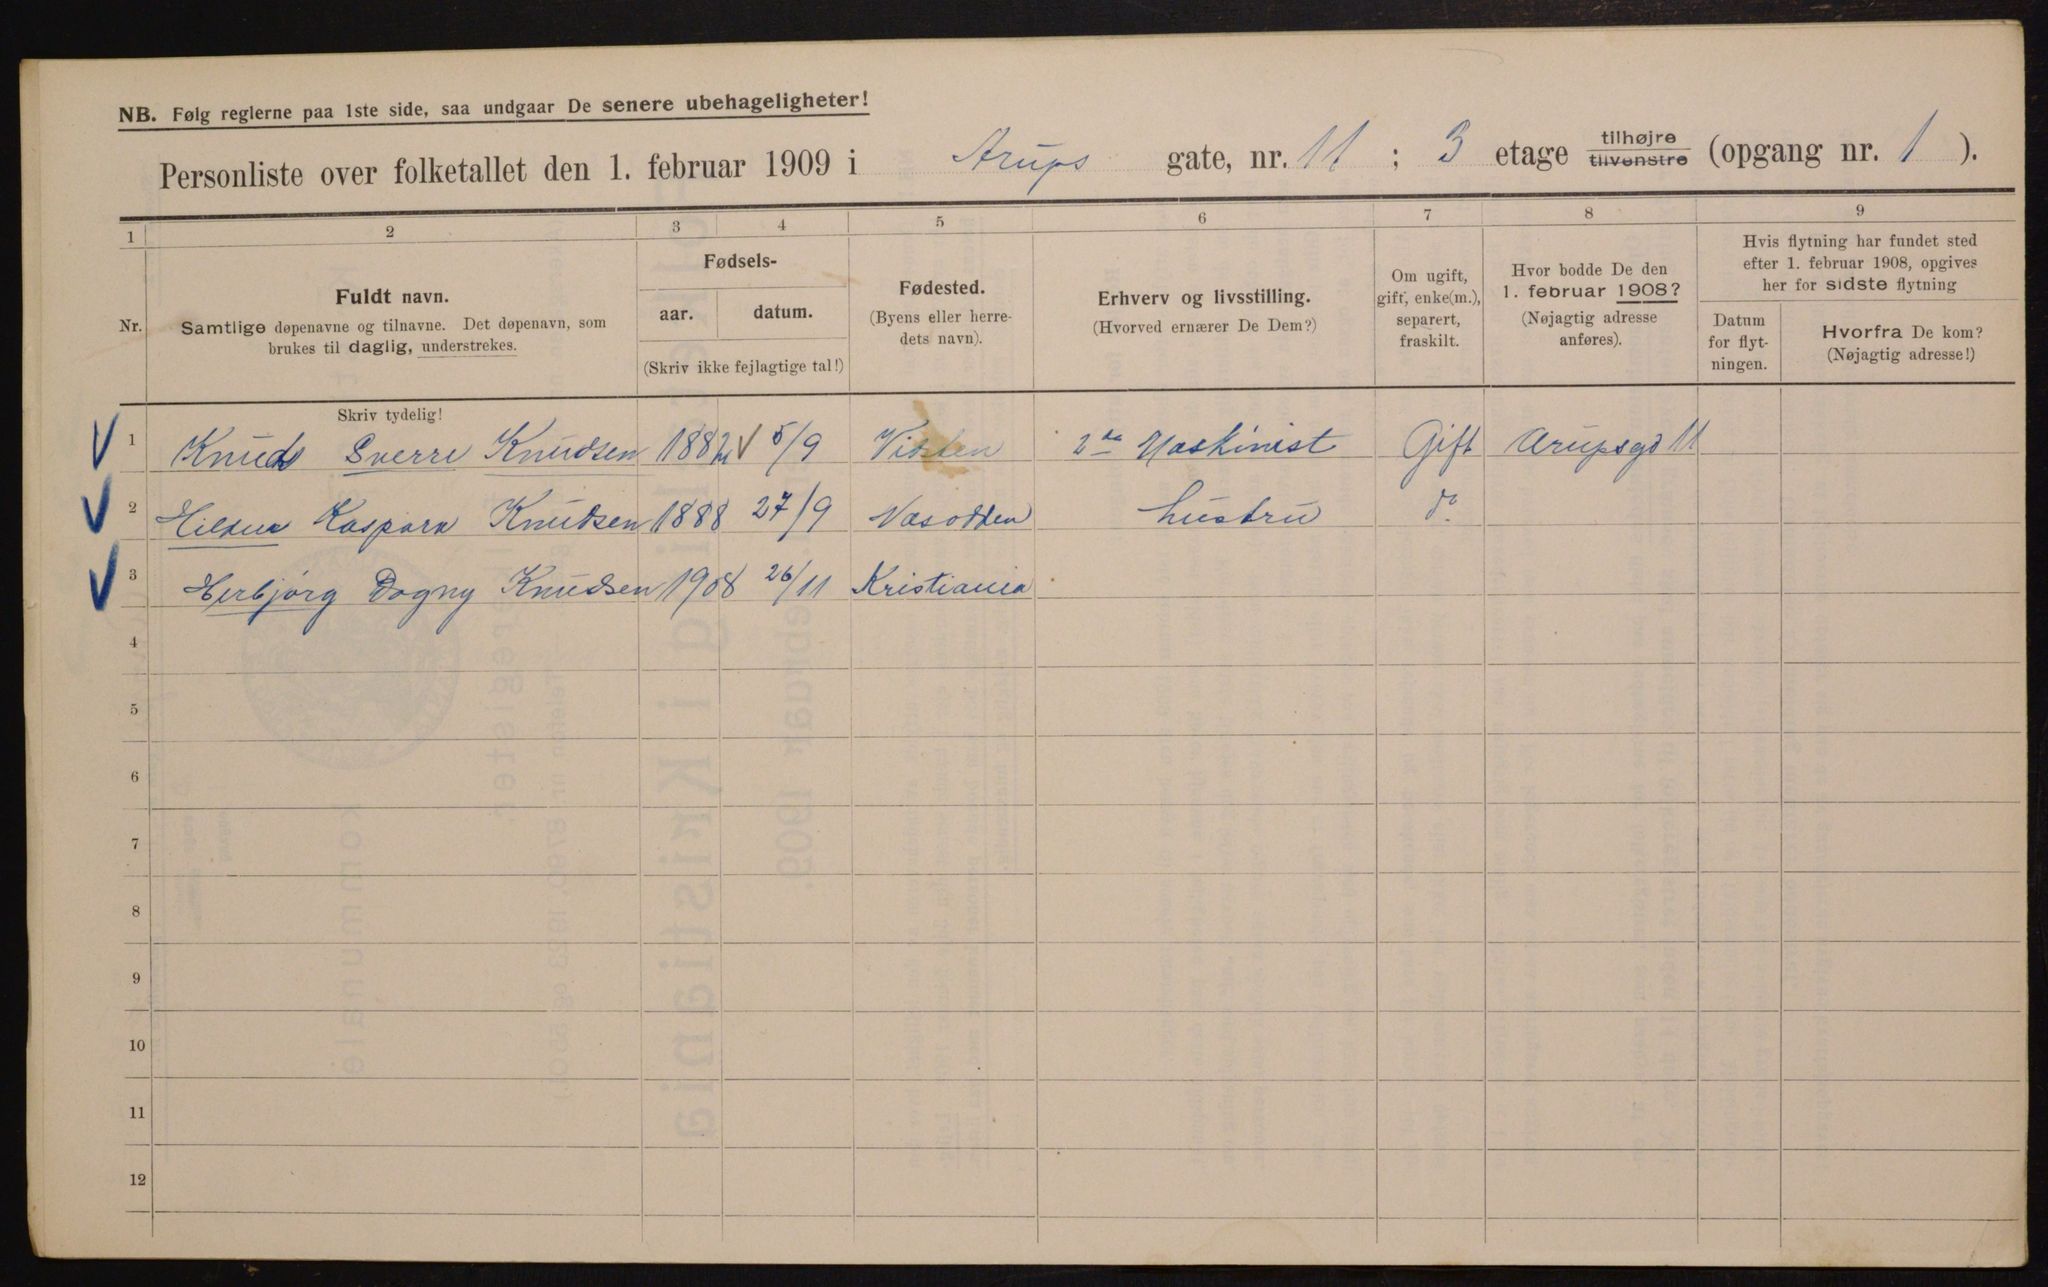 NB. Følg reglerne paa 1ste side, saa undgaar De senere ubehageligheter!
Personliste over folketallet den 1. februar 1909 i Arups gate, nr. 11 ; 3 etage tilhøjre tilvenstre (opgang nr. 1 ).
1 2 3 4 5 6 7 8 9
Nr.
Fuldt navn.
Samtlige døpenavne og tilnavne. Det døpenavn, som
brukes til daglig, understrekes.
Fødsels-
aar. datum.
(Skriv ikke fejlagtige tal!)
Fødested.
(Byens eller herre-
dets navn).
Erhverv og livsstilling.
(Hvorved ernærer De Dem?)
Om ugift,
gift, enke(m.),
separert,
fraskilt.
Hvor bodde De den
1. februar 1908?
(Nøjagtig adresse
anføres).
Hvis flytning har fundet sted
efter 1. februar 1908, opgives
her for sidste flytning
Datum
for flyt-
ningen.
Hvorfra De kom?
(Nøjagtig adresse!)
Skriv tydelig!
1 Sverre Knudsen 1882 5/9 2de Maskinist Gift Arupsgd 11
2 Kaspara Knudsen 1888 27/9 Næsodden hustru do
3 Herbjørg Dagny Knudsen 1908 26/11 Kristiania
4
5
6
7
8
9
10
11
12